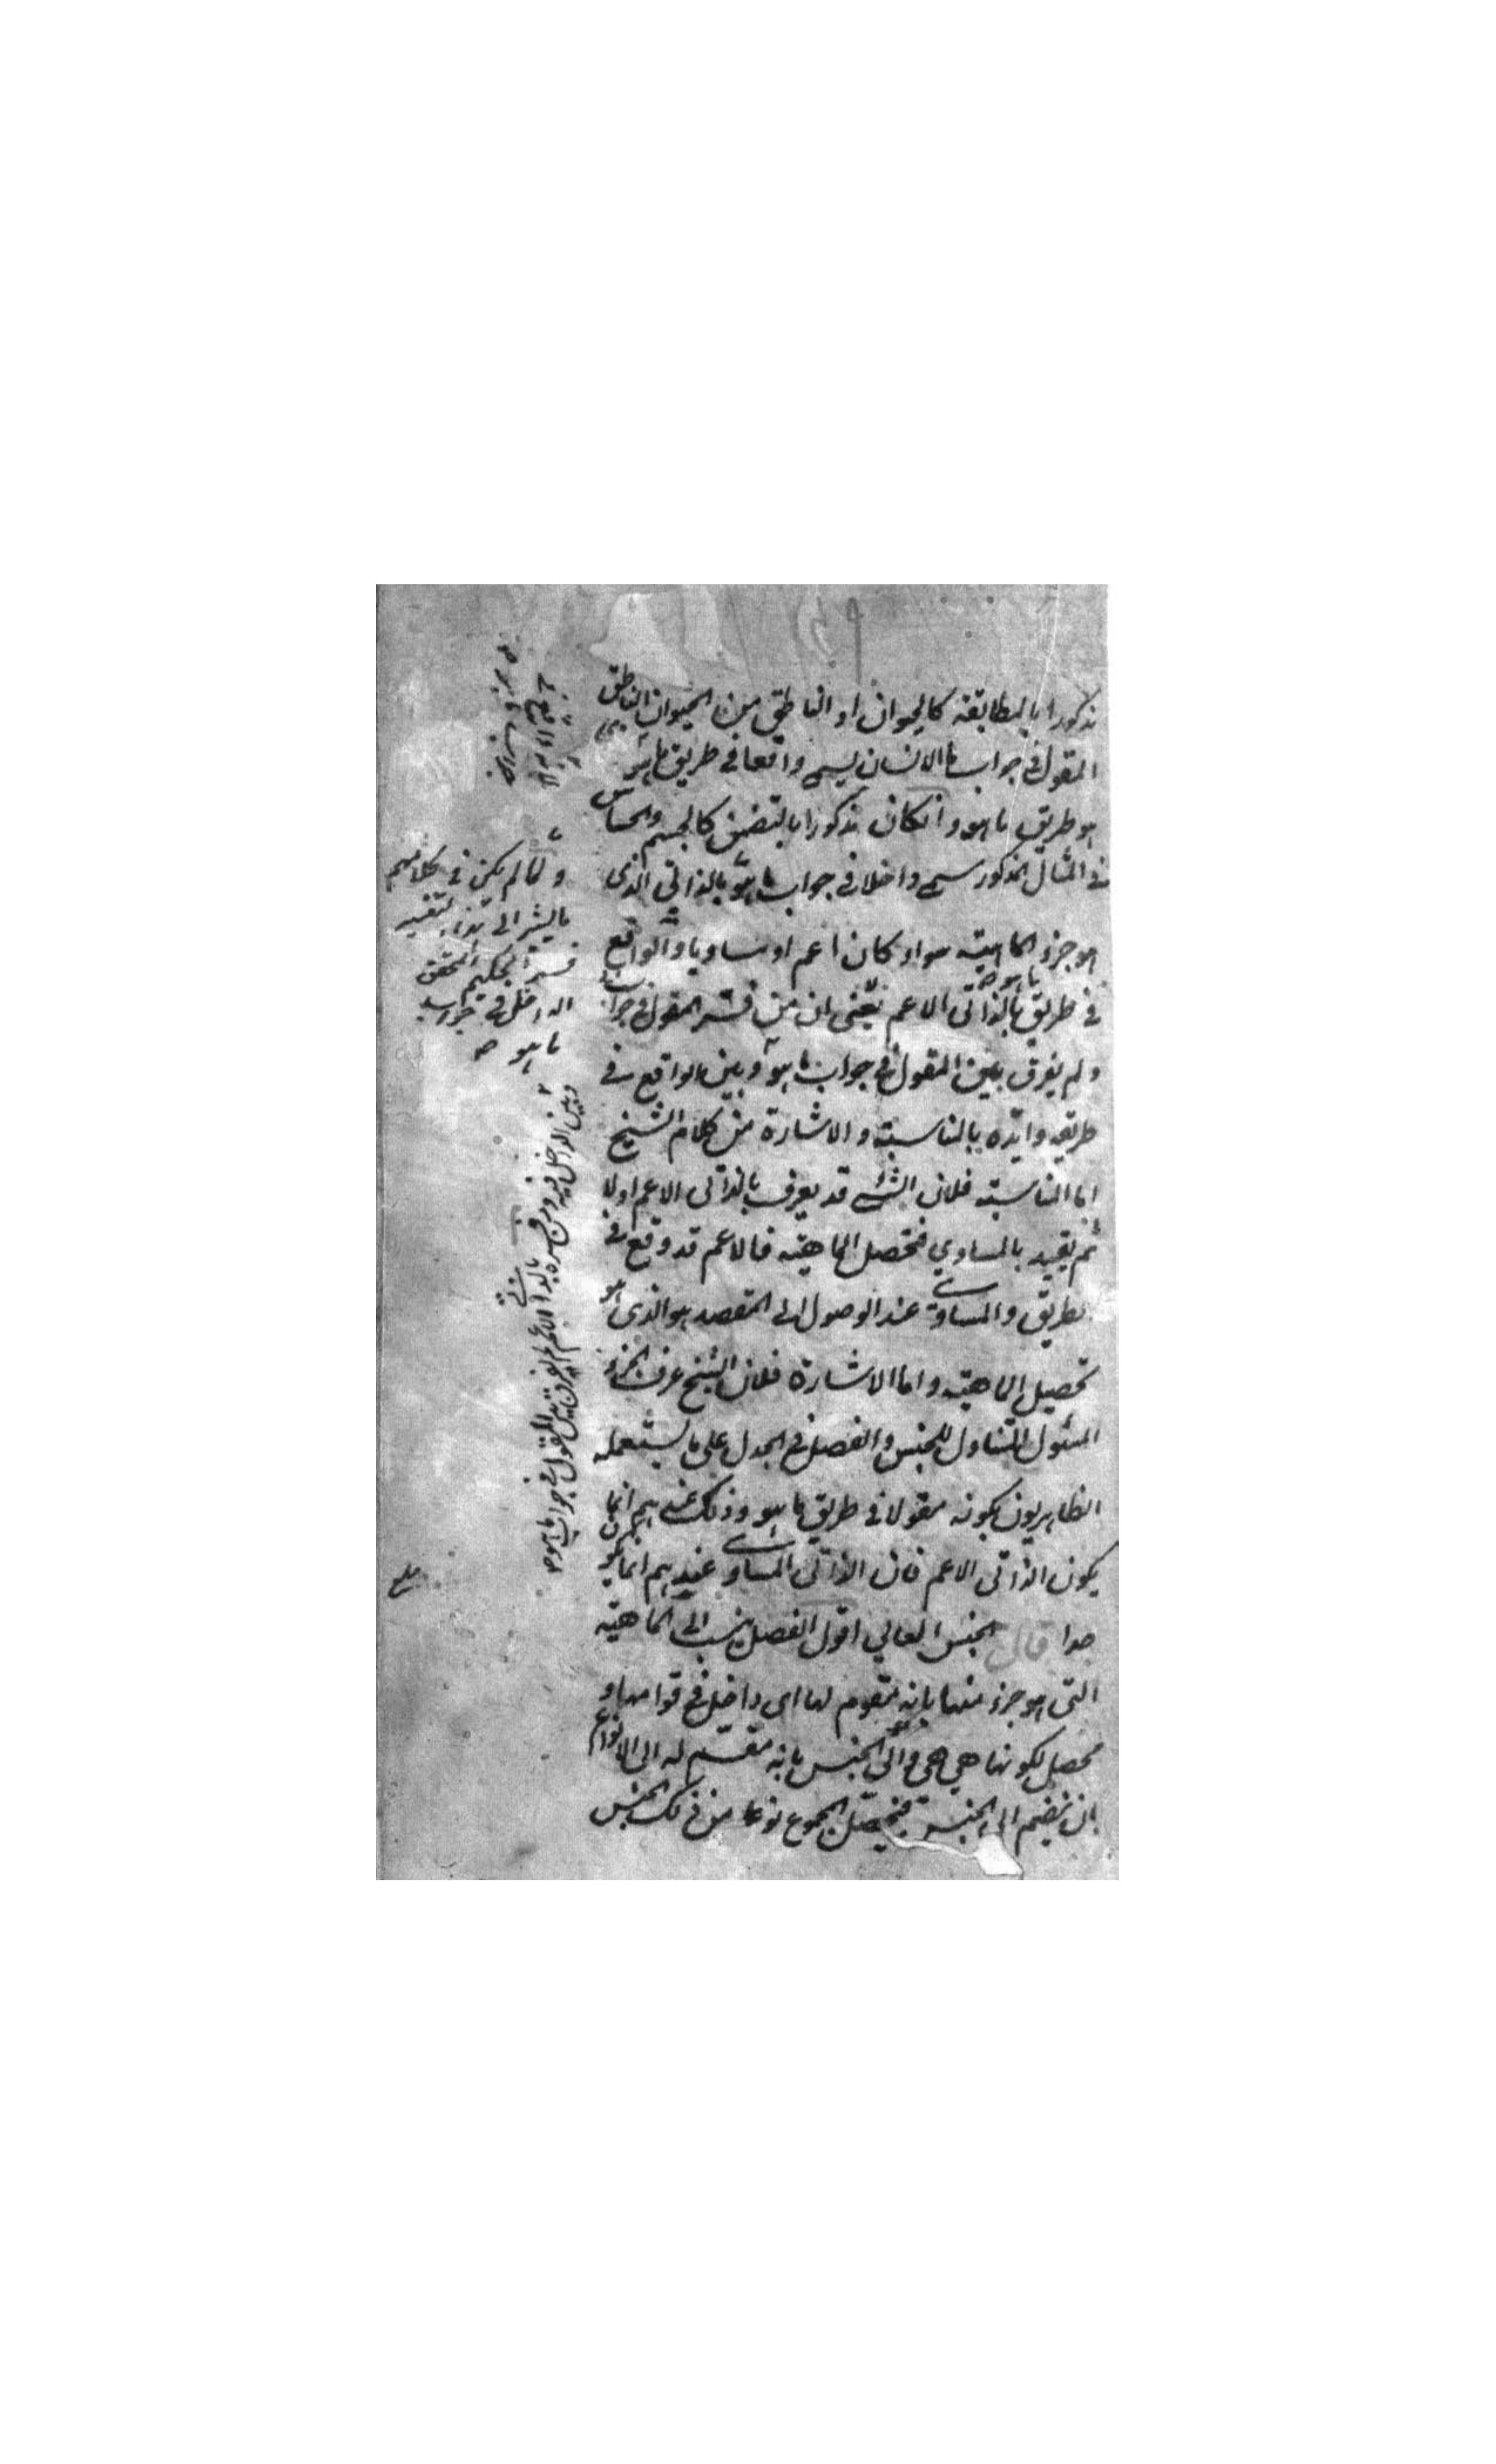 مذكورا بالمطابقة كالحيوان او الناطق من الحيوان الناطق
المقول في جواب ما الانسان يسمى واقعا في طريق ما هو
هو طريق ما هو وانكان مذكورا بالتضمن كالجسم والحساس
في المثال المذكور سمي داخلا في جواب ما هو بالذاتي الذي
هو جزء الماهية سواء كان اعم او مساويا والواقع
في طريق ما هو بالذاتي الاعم يعني ان من فسر المقول في جواب
ولم يفرق بين المقول في جواب ما هو وبين الواقع في
طريقه وايده بالمناسبة والاشارة من كلام الشيخ
اما المناسبة فلان الشئ قد يعرف بالذاتي الاعم اولا
ثم يقيد بالمساوي فتحصل الماهية فالاعم قد وقع في
الطريق والمساوي عند الوصول الى المقصد هو الذي هو
تحصيل الماهية واما الاشارة فلان الشيخ عرف الجزء
المسئول المتناول للجنس والفصل في الجدل على ما يستعمله
الظاهريون بكونه مقولا في طريق ما هو وذلك عندهم انما
يكون الذاتي الاعم فان الذاتي المساوي عندهم انما يكون
حدا قال الجنس العالي اقول الفصل ينسب الى الماهية
التي هو جزء منها بانه مقوم لها اي داخل في قوامها و
محصل لكونها هي هي والى الجنس بانه مقسم له الى الانواع
بان ينضم الى الجنس فيحصل المجموع نوعا من ذلك الجنس
ولما لم يكن في كلامهم
ما يشير الى هذا التفسير
فسر الحكيم المحقق
الداخل في جواب
ما هو صح
وبين الداخل فيه ومن فسره بالذاتي الاعم لم يفرق بين المقول في جواب ما هو صح